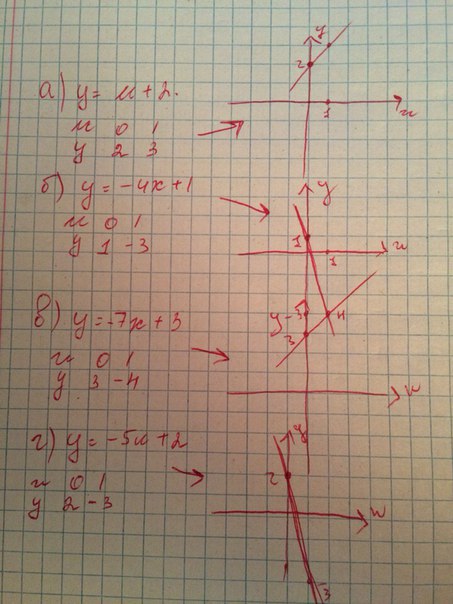 а) y = x + 2.
x 0 1
y 2 3
y
2
1
x
б) y = -4x + 1
x 0 1
y 1 -3
y
1
1
x
-3
в) y = -7x + 3
x 0 1
y 3 -4
y
3
4
x
г) y = -5x + 2
x 0 1
y 2 -3
y
2
x
-3